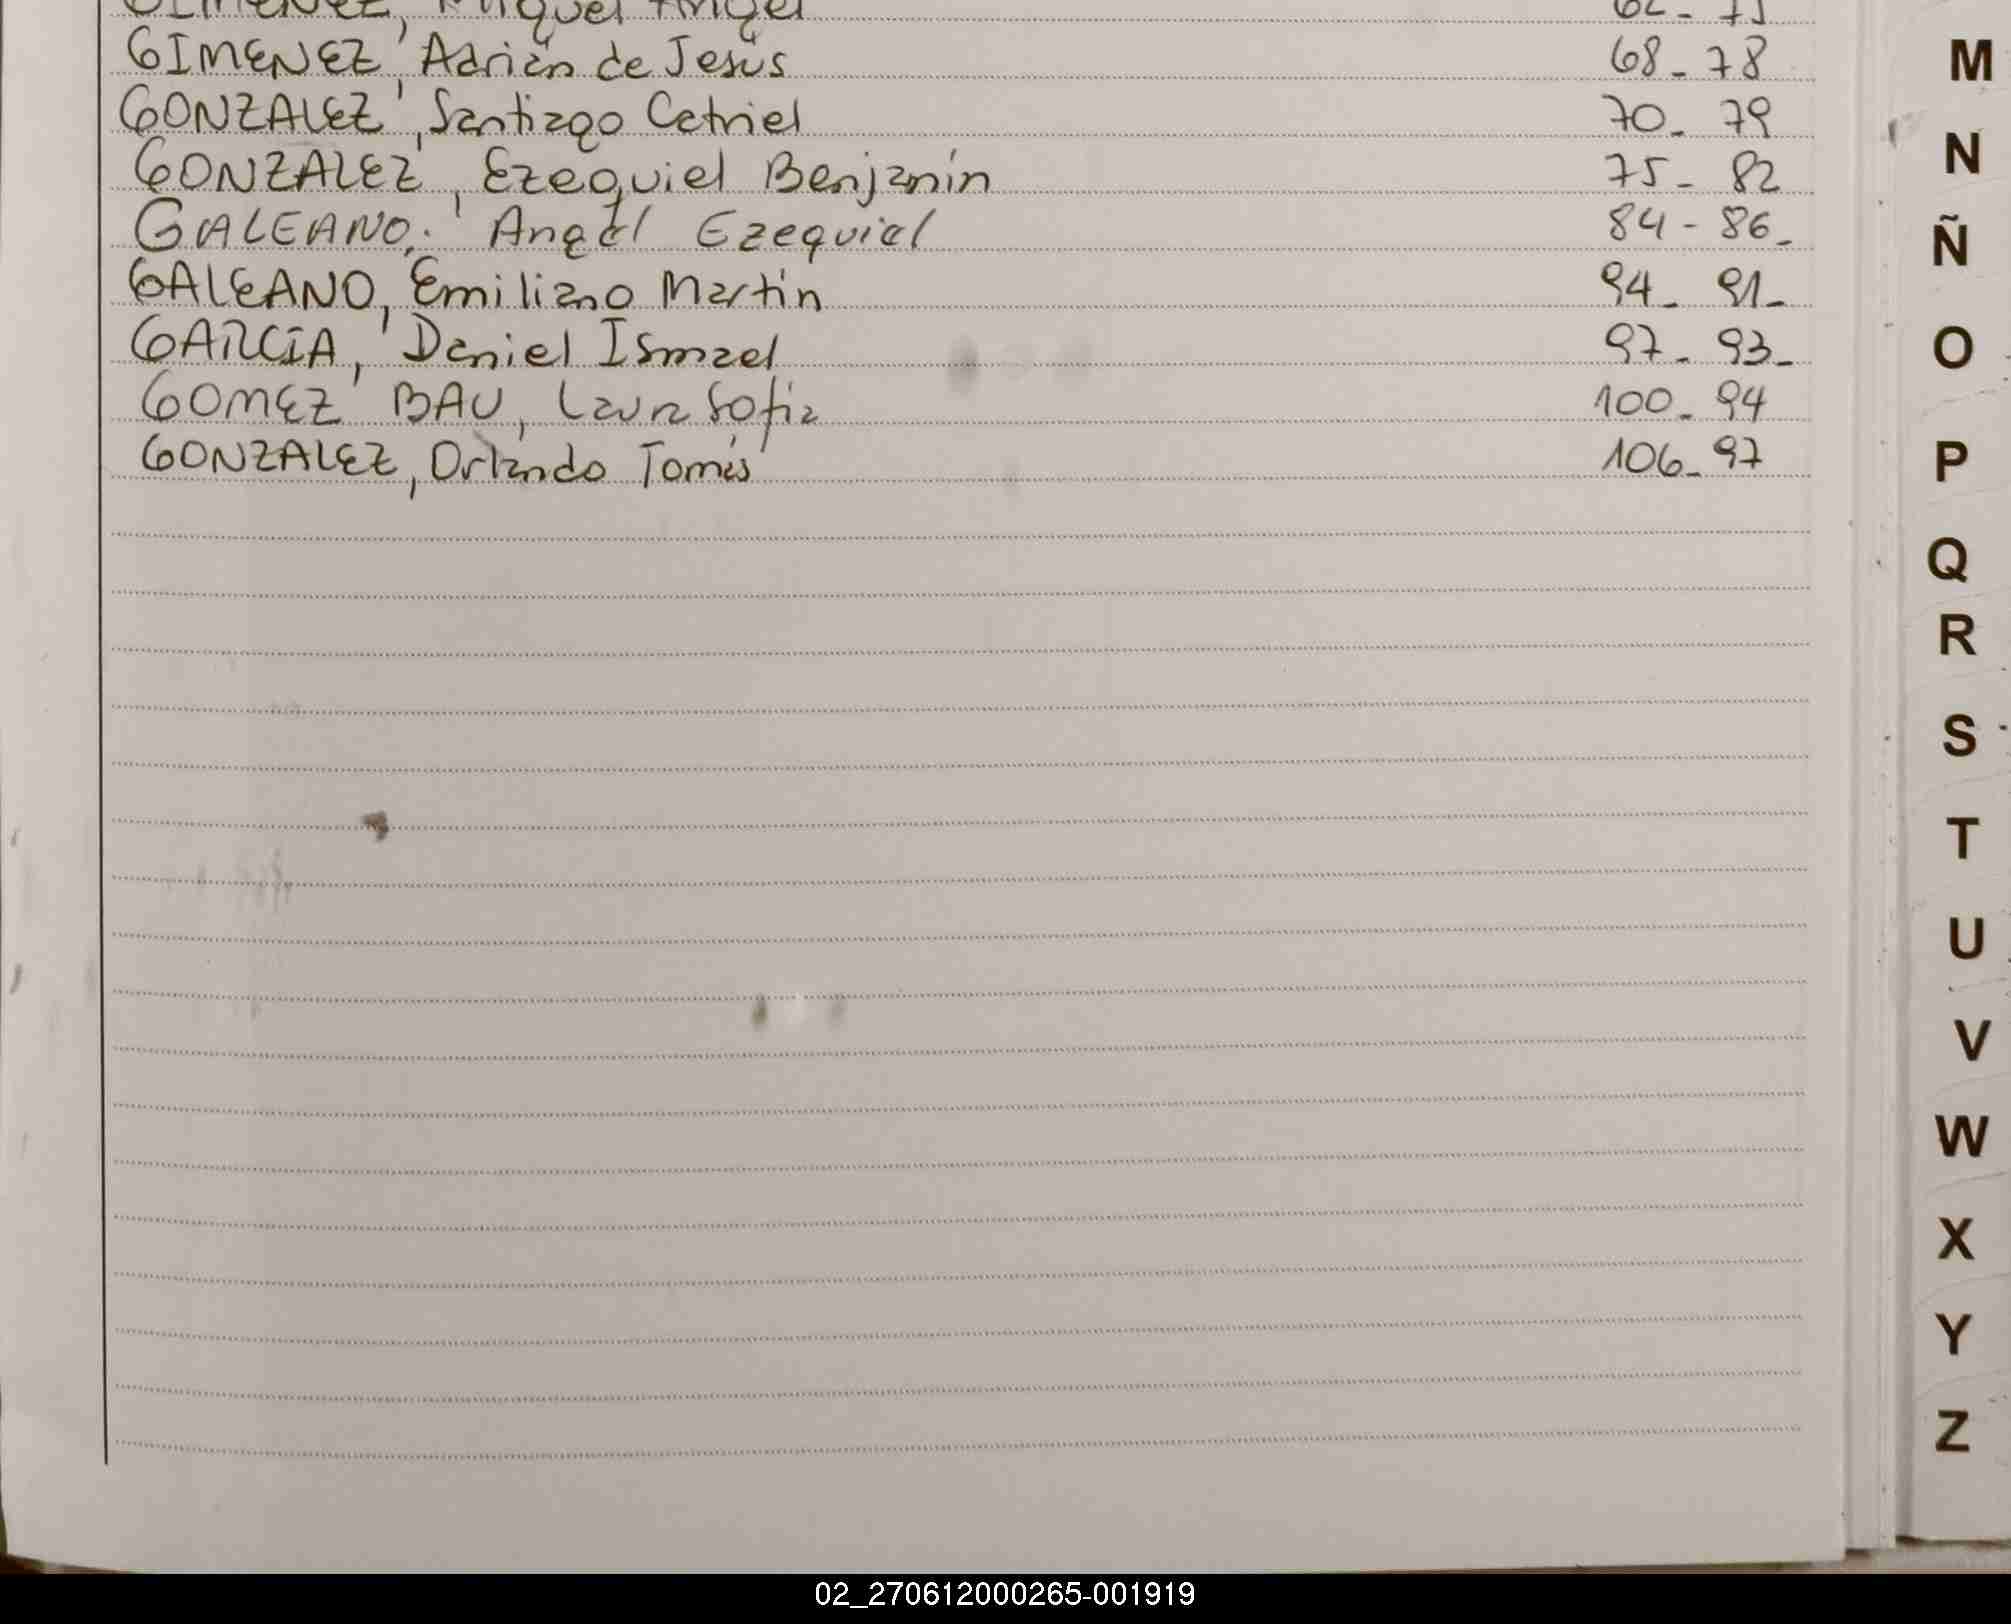 GIMENEZ, Miguel Angel 62-75
GIMENEZ, Adrián de Jesús 68-78
GONZALEZ, Santiago Catriel 70-79
GONZALEZ, Ezequiel Benjamín 75-82
GALEANO, Angel Ezequiel 84-86-
GALEANO, Emiliano Martín 94-91-
GARCÍA, Daniel Ismael 97-93-
GOMEZ BAU, Laura Sofia 100-94
GONZALEZ, Orlando Tomás 106-97
M
N
Ñ
O
P
Q
R
S
T
U
V
W
X
Y
Z
02_270612000265-001919